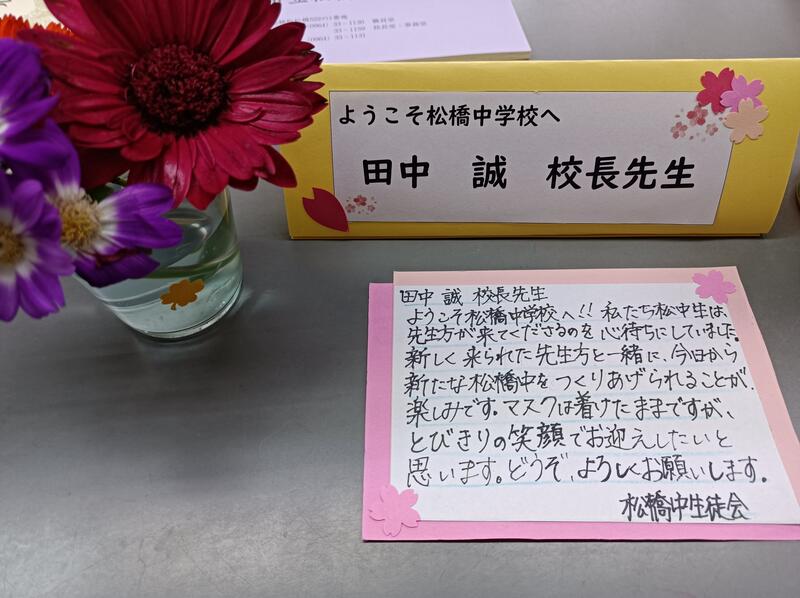 (0964) 33-1130 職員室
33-1159 校長室・事務室
(0964) 33-1131
ようこそ松橋中学校へ
田中 誠 校長先生
田中 誠 校長先生
ようこそ松橋中学校へ!! 私たち松中生は、
先生方が来てくださるのを心待ちにしていました。
新しく来られた先生方と一緒に、今日から
新たな松橋中をつくりあげられることが、
楽しみです。マスクは着けたままですが、
とびきりの笑顔でお迎えしたいと
思います。どうぞ、よろしくお願いします。
松橋中生徒会